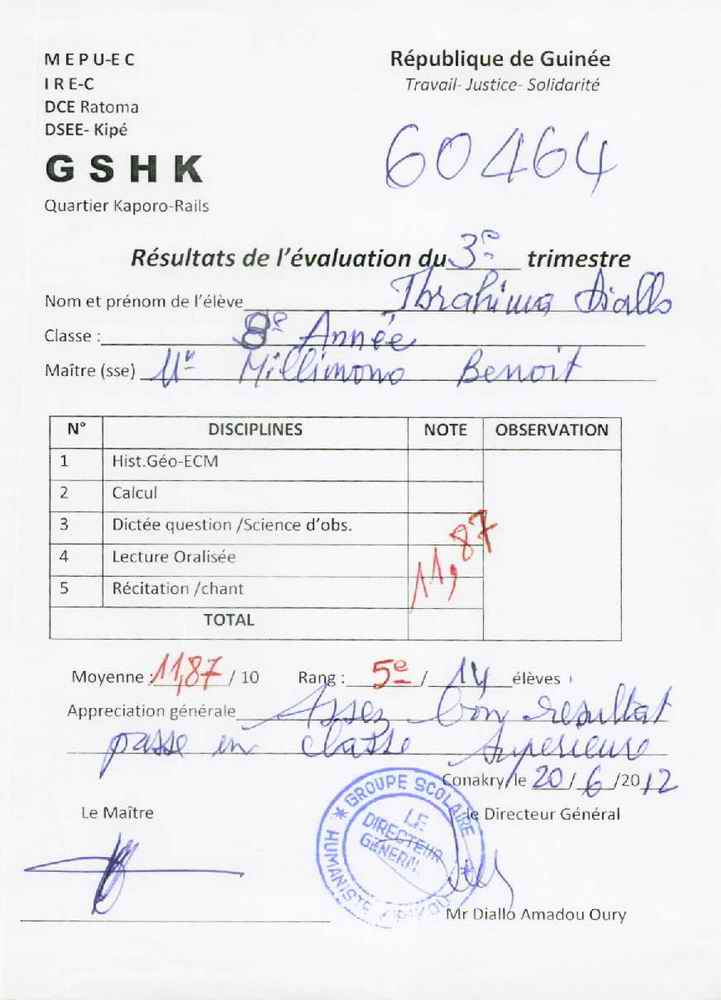 MEPU-EC
IRE-C
DCE Ratoma
DSEE- Kipé
GSHK
Quartier Kaporo-Rails
République de Guinée
Travail- Justice- Solidarité
60464
Résultats de l'évaluation du 3e trimestre
Nom et prénom de l'élève Ibrahima Diallo
Classe : 8e Année
Maître (sse) Mr Millimono Benoit
N° DISCIPLINES NOTE OBSERVATION
1 Hist.Géo-ECM
2 Calcul
3 Dictée question /Science d'obs.
4 Lecture Oralisée
5 Récitation /chant
11,87
TOTAL
Moyenne : 11,87 / 10 Rang : 5e / 14 élèves
Appreciation générale Assez bon resultat
passe en classe superieure
Conakry, le 20 / 6 /2012
Le Maître
le Directeur Général
GROUPE SCOLAIRE
HUMANISTE
LE
DIRECTEUR
GENERAL
Mr Diallo Amadou Oury